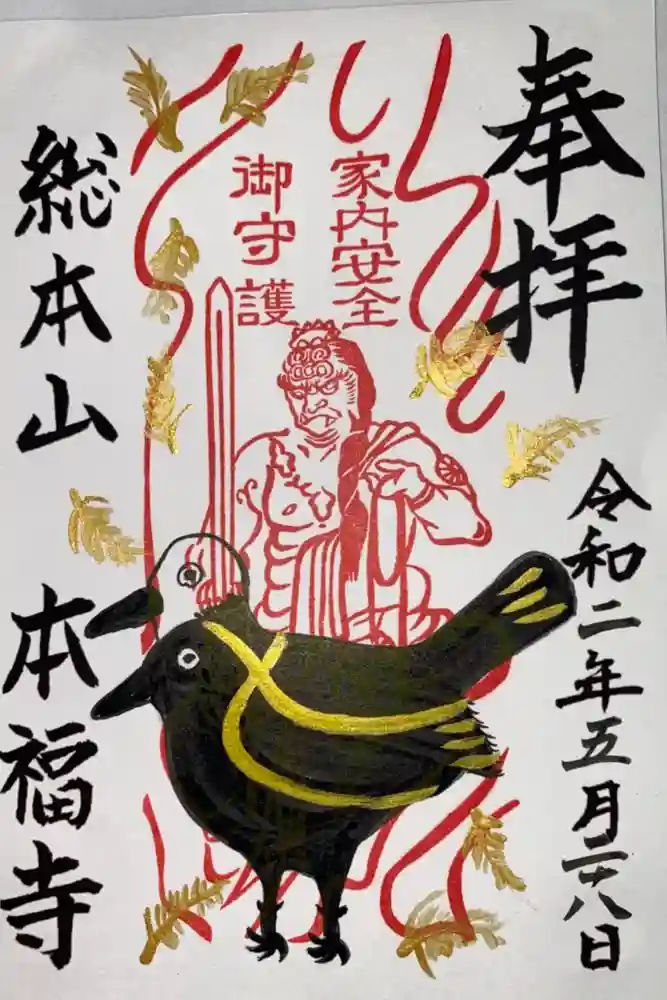 奉拝
令和二年五月二十八日
家内安全
御守護
総本山
本福寺